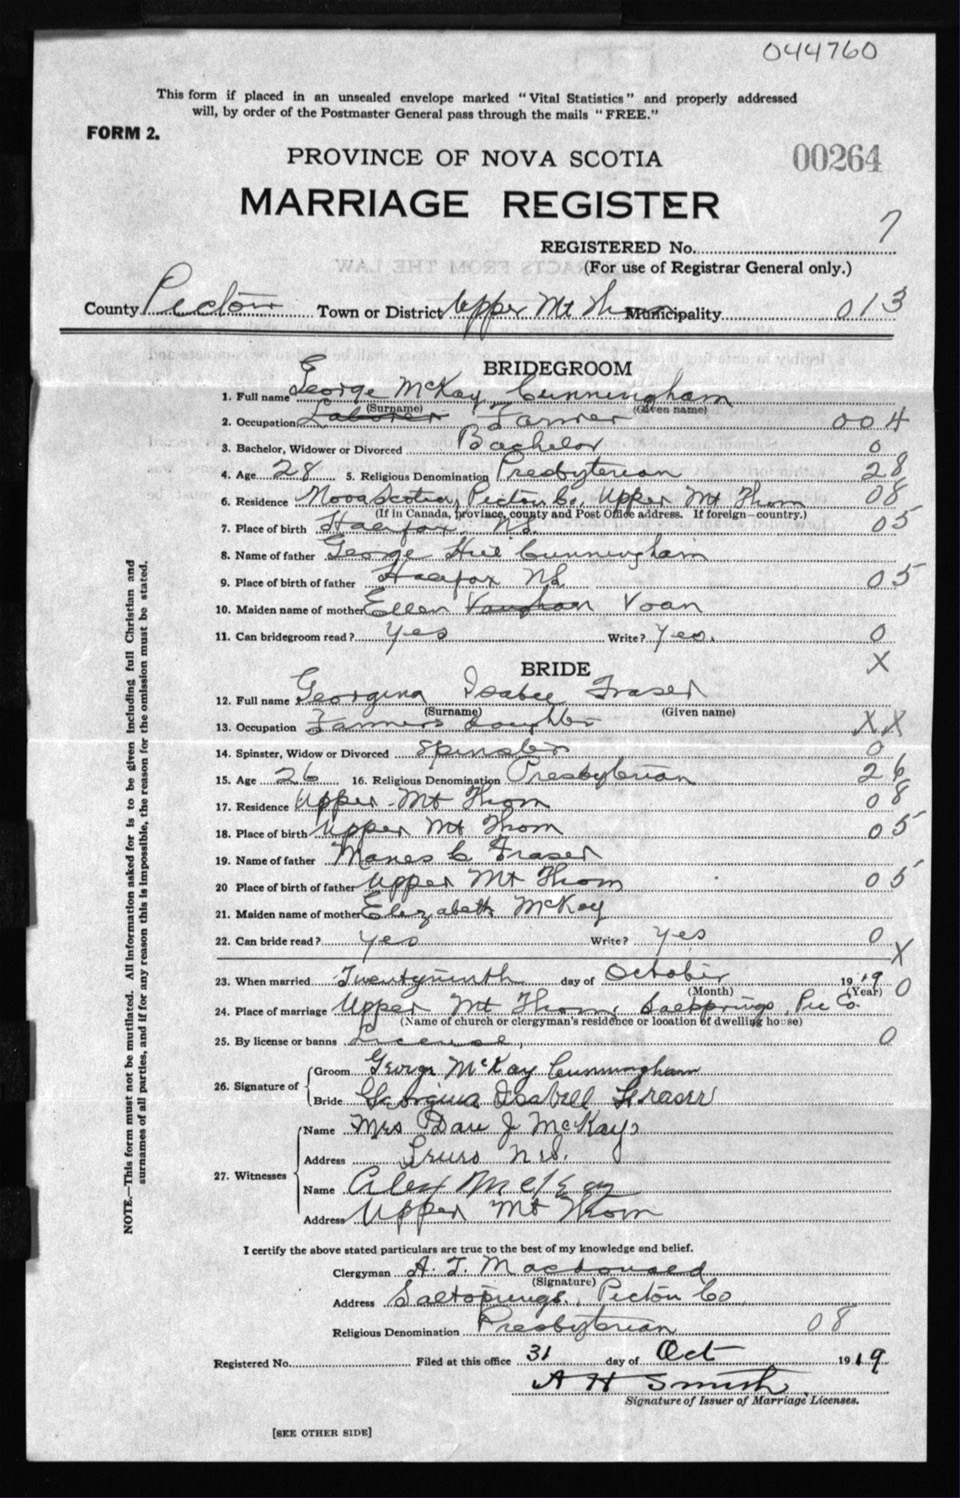 044760
This form if placed in an unsealed envelope marked "Vital Statistics" and properly addressed
will, by order of the Postmaster General pass through the mails "FREE."
FORM 2.
PROVINCE OF NOVA SCOTIA
00264
MARRIAGE REGISTER
REGISTERED No. 7
(For use of Registrar General only.)
County Pictou Town or District Upper Mt Thom Municipality 013
BRIDEGROOM
1. Full name George McKay Cunningham
(Surname) (Given name)
2. Occupation Laborer Farmer 004
3. Bachelor, Widower or Divorced Bachelor 0
4. Age 28 5. Religious Denomination Presbyterian 28
6. Residence Nova Scotia, Pictou Co, Upper Mt Thom 08
(If in Canada, province, county and Post Office address. If foreign—country.)
7. Place of birth Halifax, N.S. 05
8. Name of father George Hill Cunningham
9. Place of birth of father Halifax NS 05
10. Maiden name of mother Ellen Vaughan Voan
11. Can bridegroom read? Yes Write? Yes. 0
BRIDE X
12. Full name Georgina Isabell Fraser
(Surname) (Given name)
13. Occupation Farmers Daughter XX
14. Spinster, Widow or Divorced Spinster 0
15. Age 26 16. Religious Denomination Presbyterian 26
17. Residence Upper Mt Thom 08
18. Place of birth Upper Mt Thom 05
19. Name of father C Fraser
20 Place of birth of father Upper Mt Thom 05
21. Maiden name of mother Elizabeth McKay
22. Can bride read? Yes Write? Yes 0
X
23. When married Twentyninth day of October 1919 0
(Month) (Year)
24. Place of marriage Upper Mt Thom, Saltsprings, Pic Co.
(Name of church or clergyman's residence or location of dwelling house)
25. By license or banns License, 0
26. Signature of
Groom George McKay Cunningham
Bride Georgina Isabell Fraser
27. Witnesses
Name Mrs Dan J McKay
Address Truro N.S.
Name Alex McKay
Address Upper Mt Thom
I certify the above stated particulars are true to the best of my knowledge and belief.
Clergyman A. J. Macdonald
(Signature)
Address Saltsprings, Pictou Co
Religious Denomination Presbyterian 08
Registered No. Filed at this office 31 day of Oct 1919
A H Smith
Signature of Issuer of Marriage Licenses.
[SEE OTHER SIDE]
NOTE.—This form must not be mutilated. All information asked for is to be given including full Christian and
surnames of all parties, and if for any reason this is impossible, the reason for the omission must be stated.